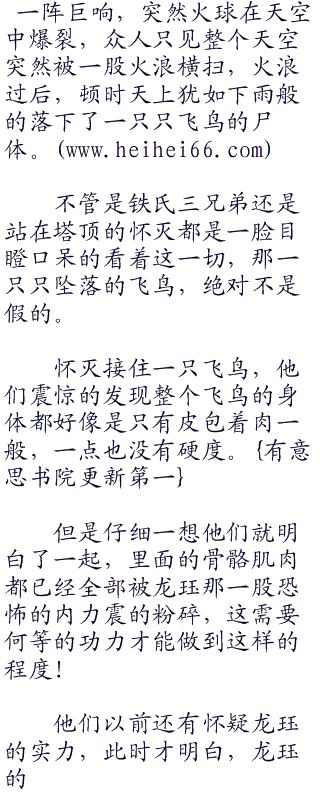 一阵巨响，突然火球在天空
中爆裂，众人只见整个天空
突然被一股火浪横扫，火浪
过后，顿时天上犹如下雨般
的落下了一只只飞鸟的尸
体。(www.heihei66.com)
不管是铁氏三兄弟还是
站在塔顶的怀灭都是一脸目
瞪口呆的看着这一切，那一
只只坠落的飞鸟，绝对不是
假的。
怀灭接住一只飞鸟，他
们震惊的发现整个飞鸟的身
体都好像是只有皮包着肉一
般，一点也没有硬度。{有意
思书院更新第一}
但是仔细一想他们就明
白了一起，里面的骨骼肌肉
都已经全部被龙珏那一股恐
怖的内力震的粉碎，这需要
何等的功力才能做到这样的
程度！
他们以前还有怀疑龙珏
的实力，此时才明白，龙珏
的